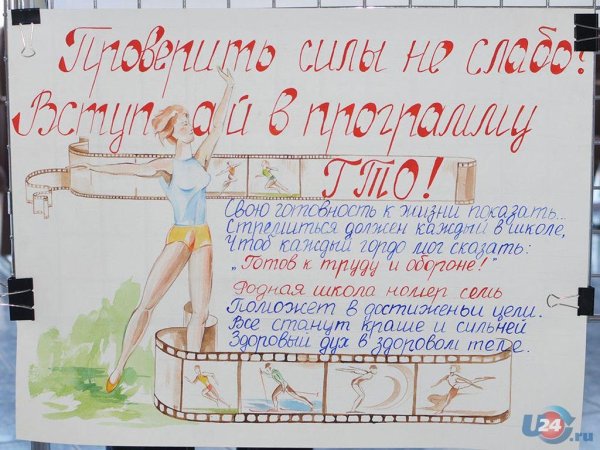 Проверить силы не слабо?
Вступай в программу
ГТО!
Свою готовность к жизни показать...
Стремиться должен каждый в школе,
Чтоб каждый гордо мог сказать:
"Готов к труду и обороне!"
Родная школа номер семь
Поможет в достиженьи цели.
Все станут краше и сильней
Здоровый дух в здоровом теле.
U24.ru